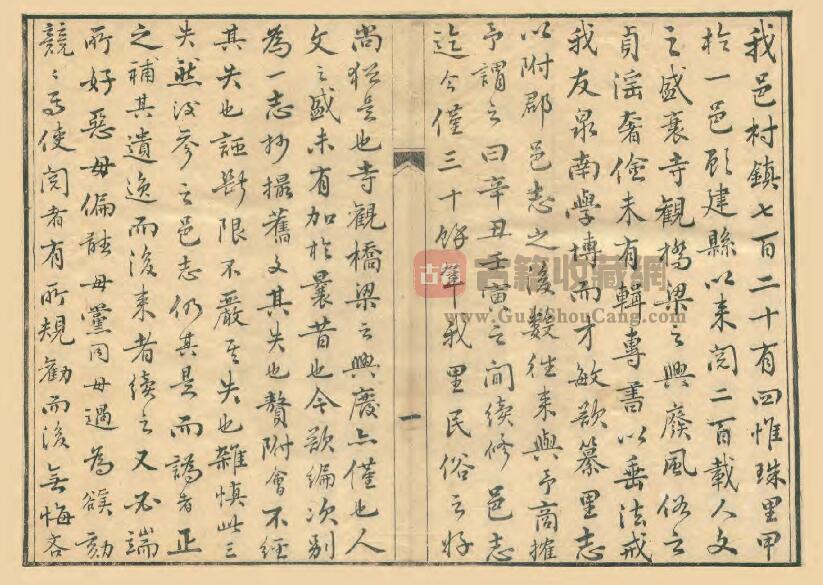 我邑村鎮七百二十有四惟珠里甲
於一邑顧建縣以来閲二百載人文
之盛衰寺觀橋梁之興廢風俗之
貞滛奢儉未有輯專書以垂法戒
我友泉南學博而才敏欲纂里志
以附郡邑志之後數往来與予商搉
予謂之曰辛丑壬寅之間續修邑志
迄今僅三十餘年我里民俗之好
尚猶是也寺觀橋梁之興廢亦僅也人
文之盛未有加於曩昔也今欲編次别
為一志抄撮舊文其失也贅附會不經
其失也誣斷限不嚴其失也雜慎此三
失然後參之邑志仍其是而譌者正
之補其遺逸而後来者續之又必端
所好惡毋偏詖毋黨同毋過為
競競焉使閲者有所規勸而後無悔吝
一
古籍收藏網
www.GuJiShouCang.com